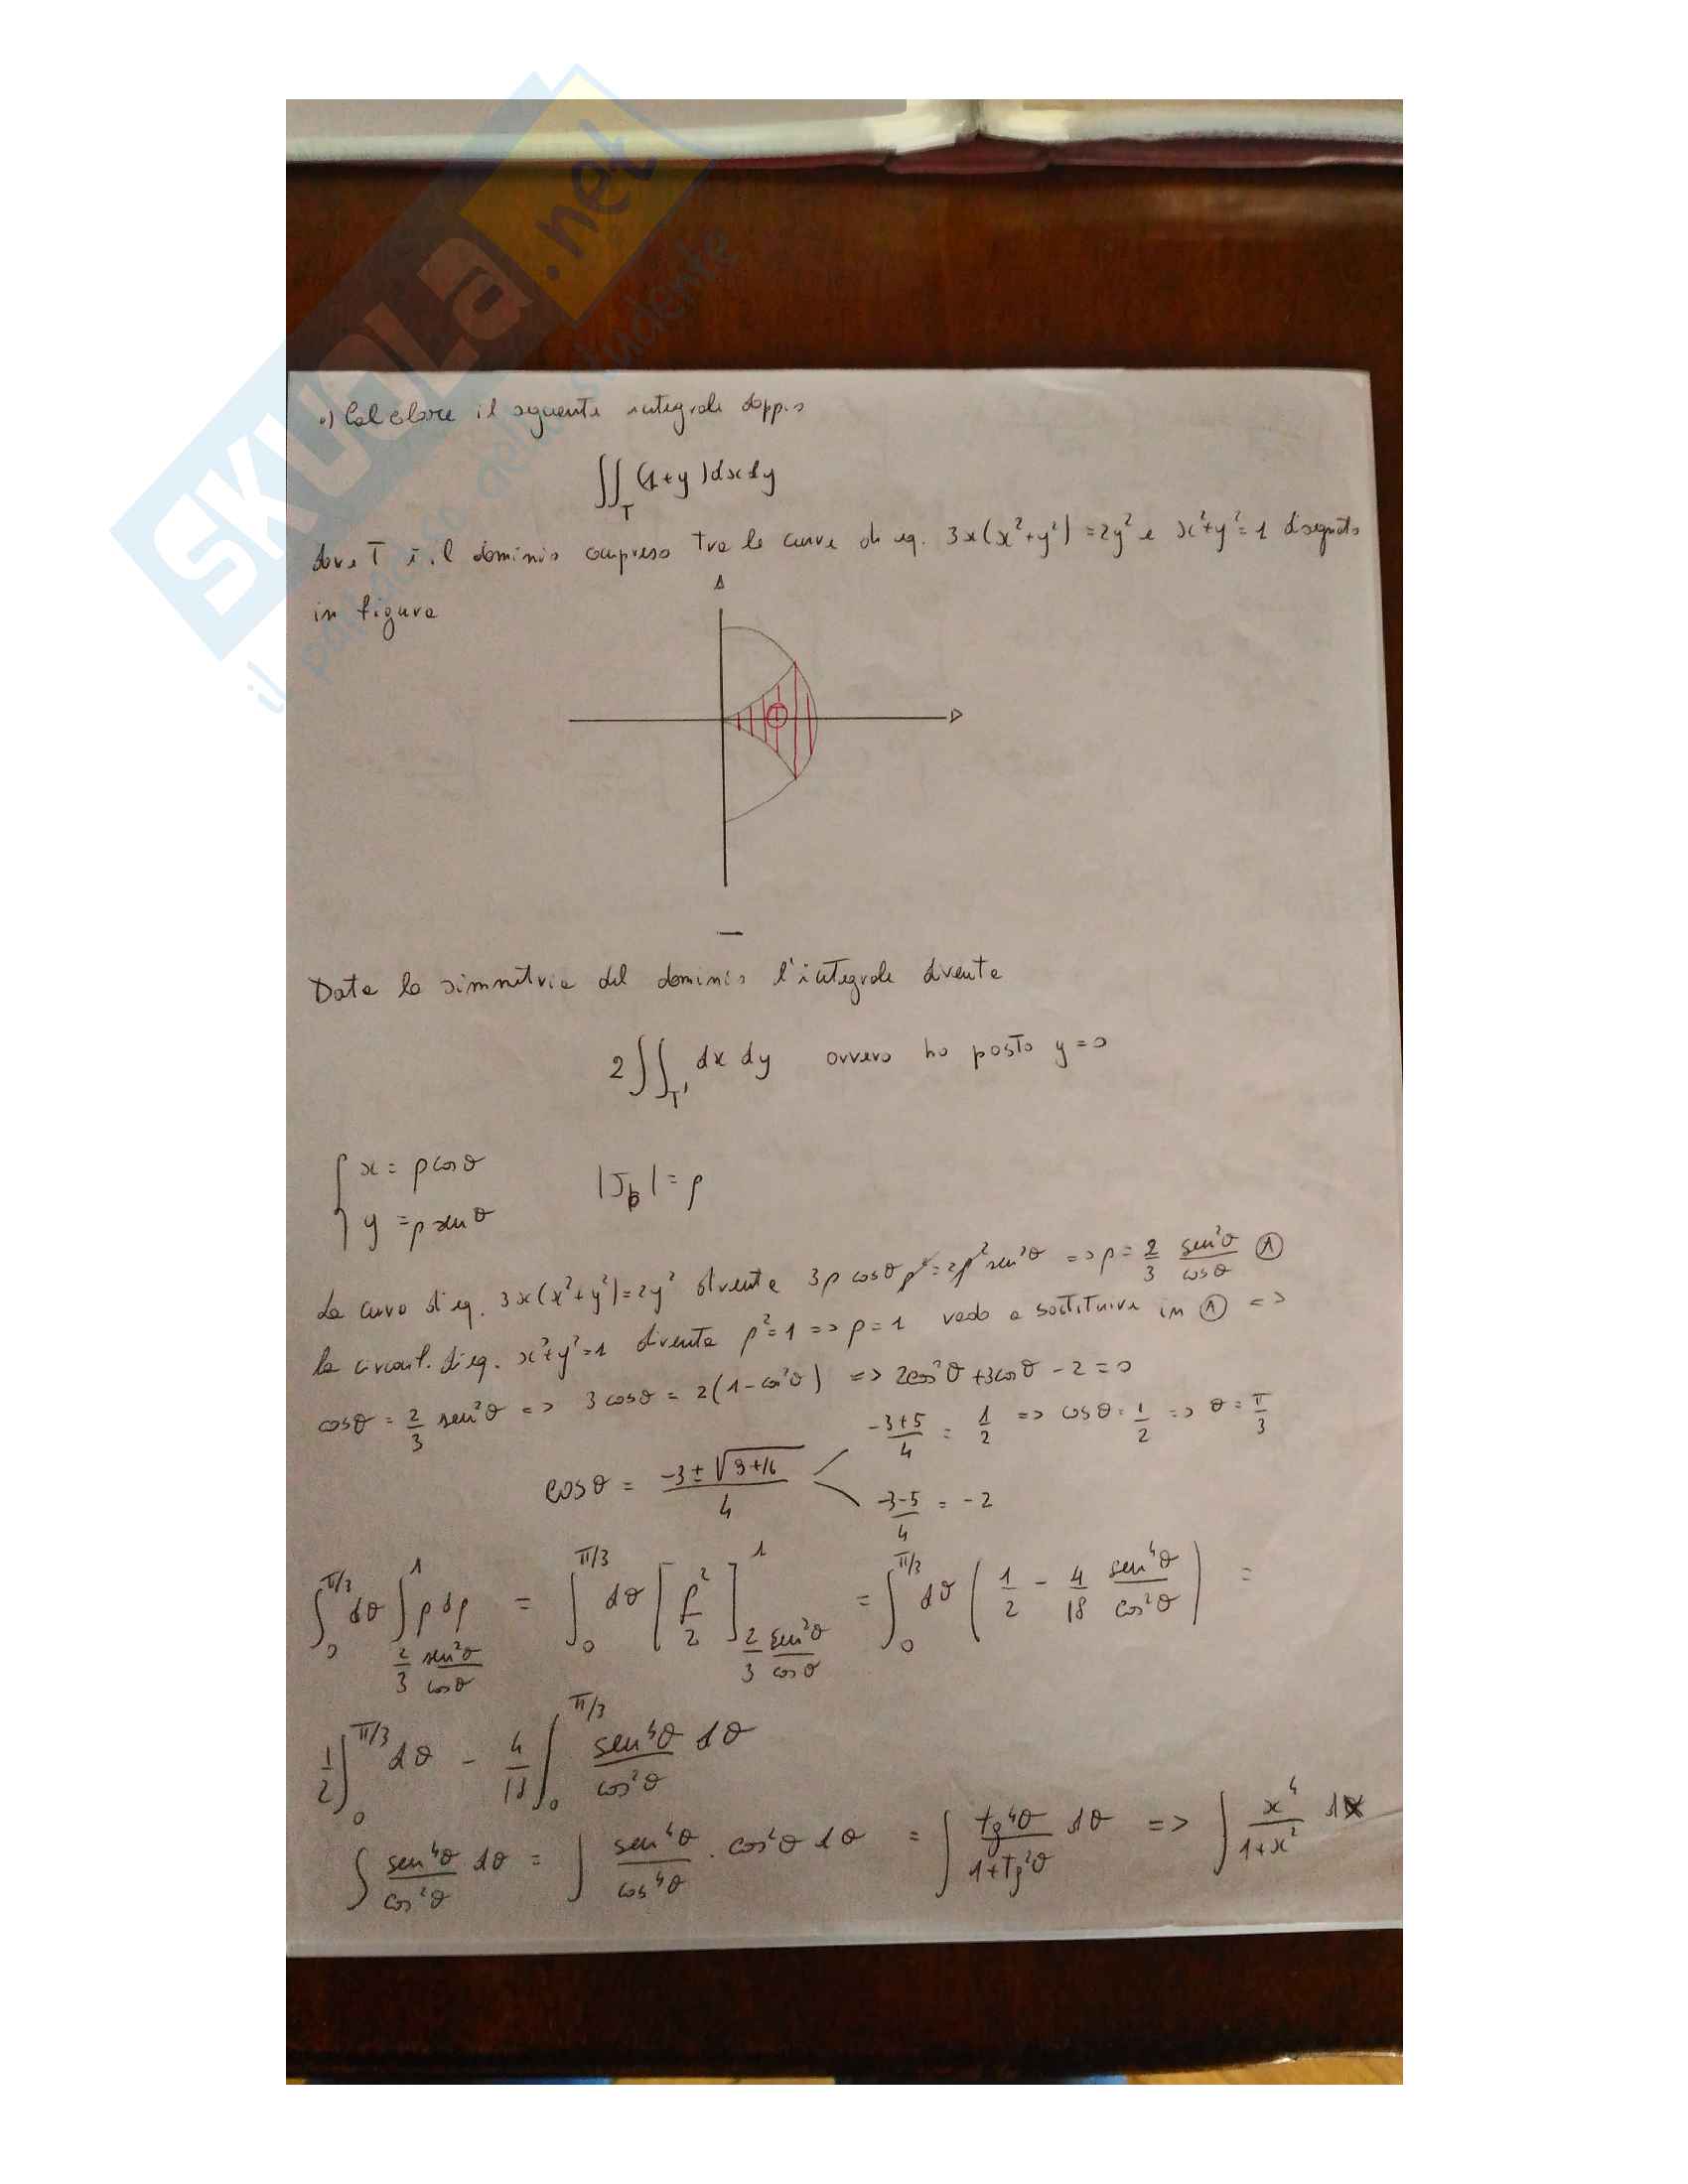 SKUOLA.net
il paradiso dello studente
•) Calcolare il seguente integrale doppio
∬_T (1+y)dxdy
dove T è il dominio compreso tra le curve di eq. 3x(x²+y²)=2y² e x²+y²=1 disegnato
in figura
T
Data la simmetria del dominio l'integrale diventa
2∬_T' dx dy ovvero ho posto y=0
{ x = ρcosθ
y = ρ senθ
|J_p| = ρ
La curva di eq. 3x(x²+y²)=2y² diventa 3ρ cosθ ρ² = 2ρ² sen²θ => ρ = 2/3 sen²θ/cosθ ①
la circonf. di eq. x²+y²=1 diventa ρ²=1 => ρ=1 vado a sostituire in ① =>
cosθ = 2/3 sen²θ => 3cosθ = 2(1-cos²θ) => 2cos²θ+3cosθ-2=0
cosθ = (-3±√(9+16))/4
(-3+5)/4 = 1/2 => cosθ = 1/2 => θ = π/3
(-3-5)/4 = -2
∫_0^{π/3} dθ ∫_{2/3 sen²θ/cosθ}^1 ρ dρ = ∫_0^{π/3} dθ [ρ²/2]_{2/3 sen²θ/cosθ}^1 = ∫_0^{π/3} dθ (1/2 - 4/18 sen⁴θ/cos²θ) =
1/2 ∫_0^{π/3} dθ - 4/18 ∫_0^{π/3} sen⁴θ/cos²θ dθ
∫ sen⁴θ/cos²θ dθ = ∫ sen⁴θ/cos⁴θ · cos²θ dθ = ∫ tg⁴θ/(1+tg²θ) dθ => ∫ x⁴/(1+x²) dx